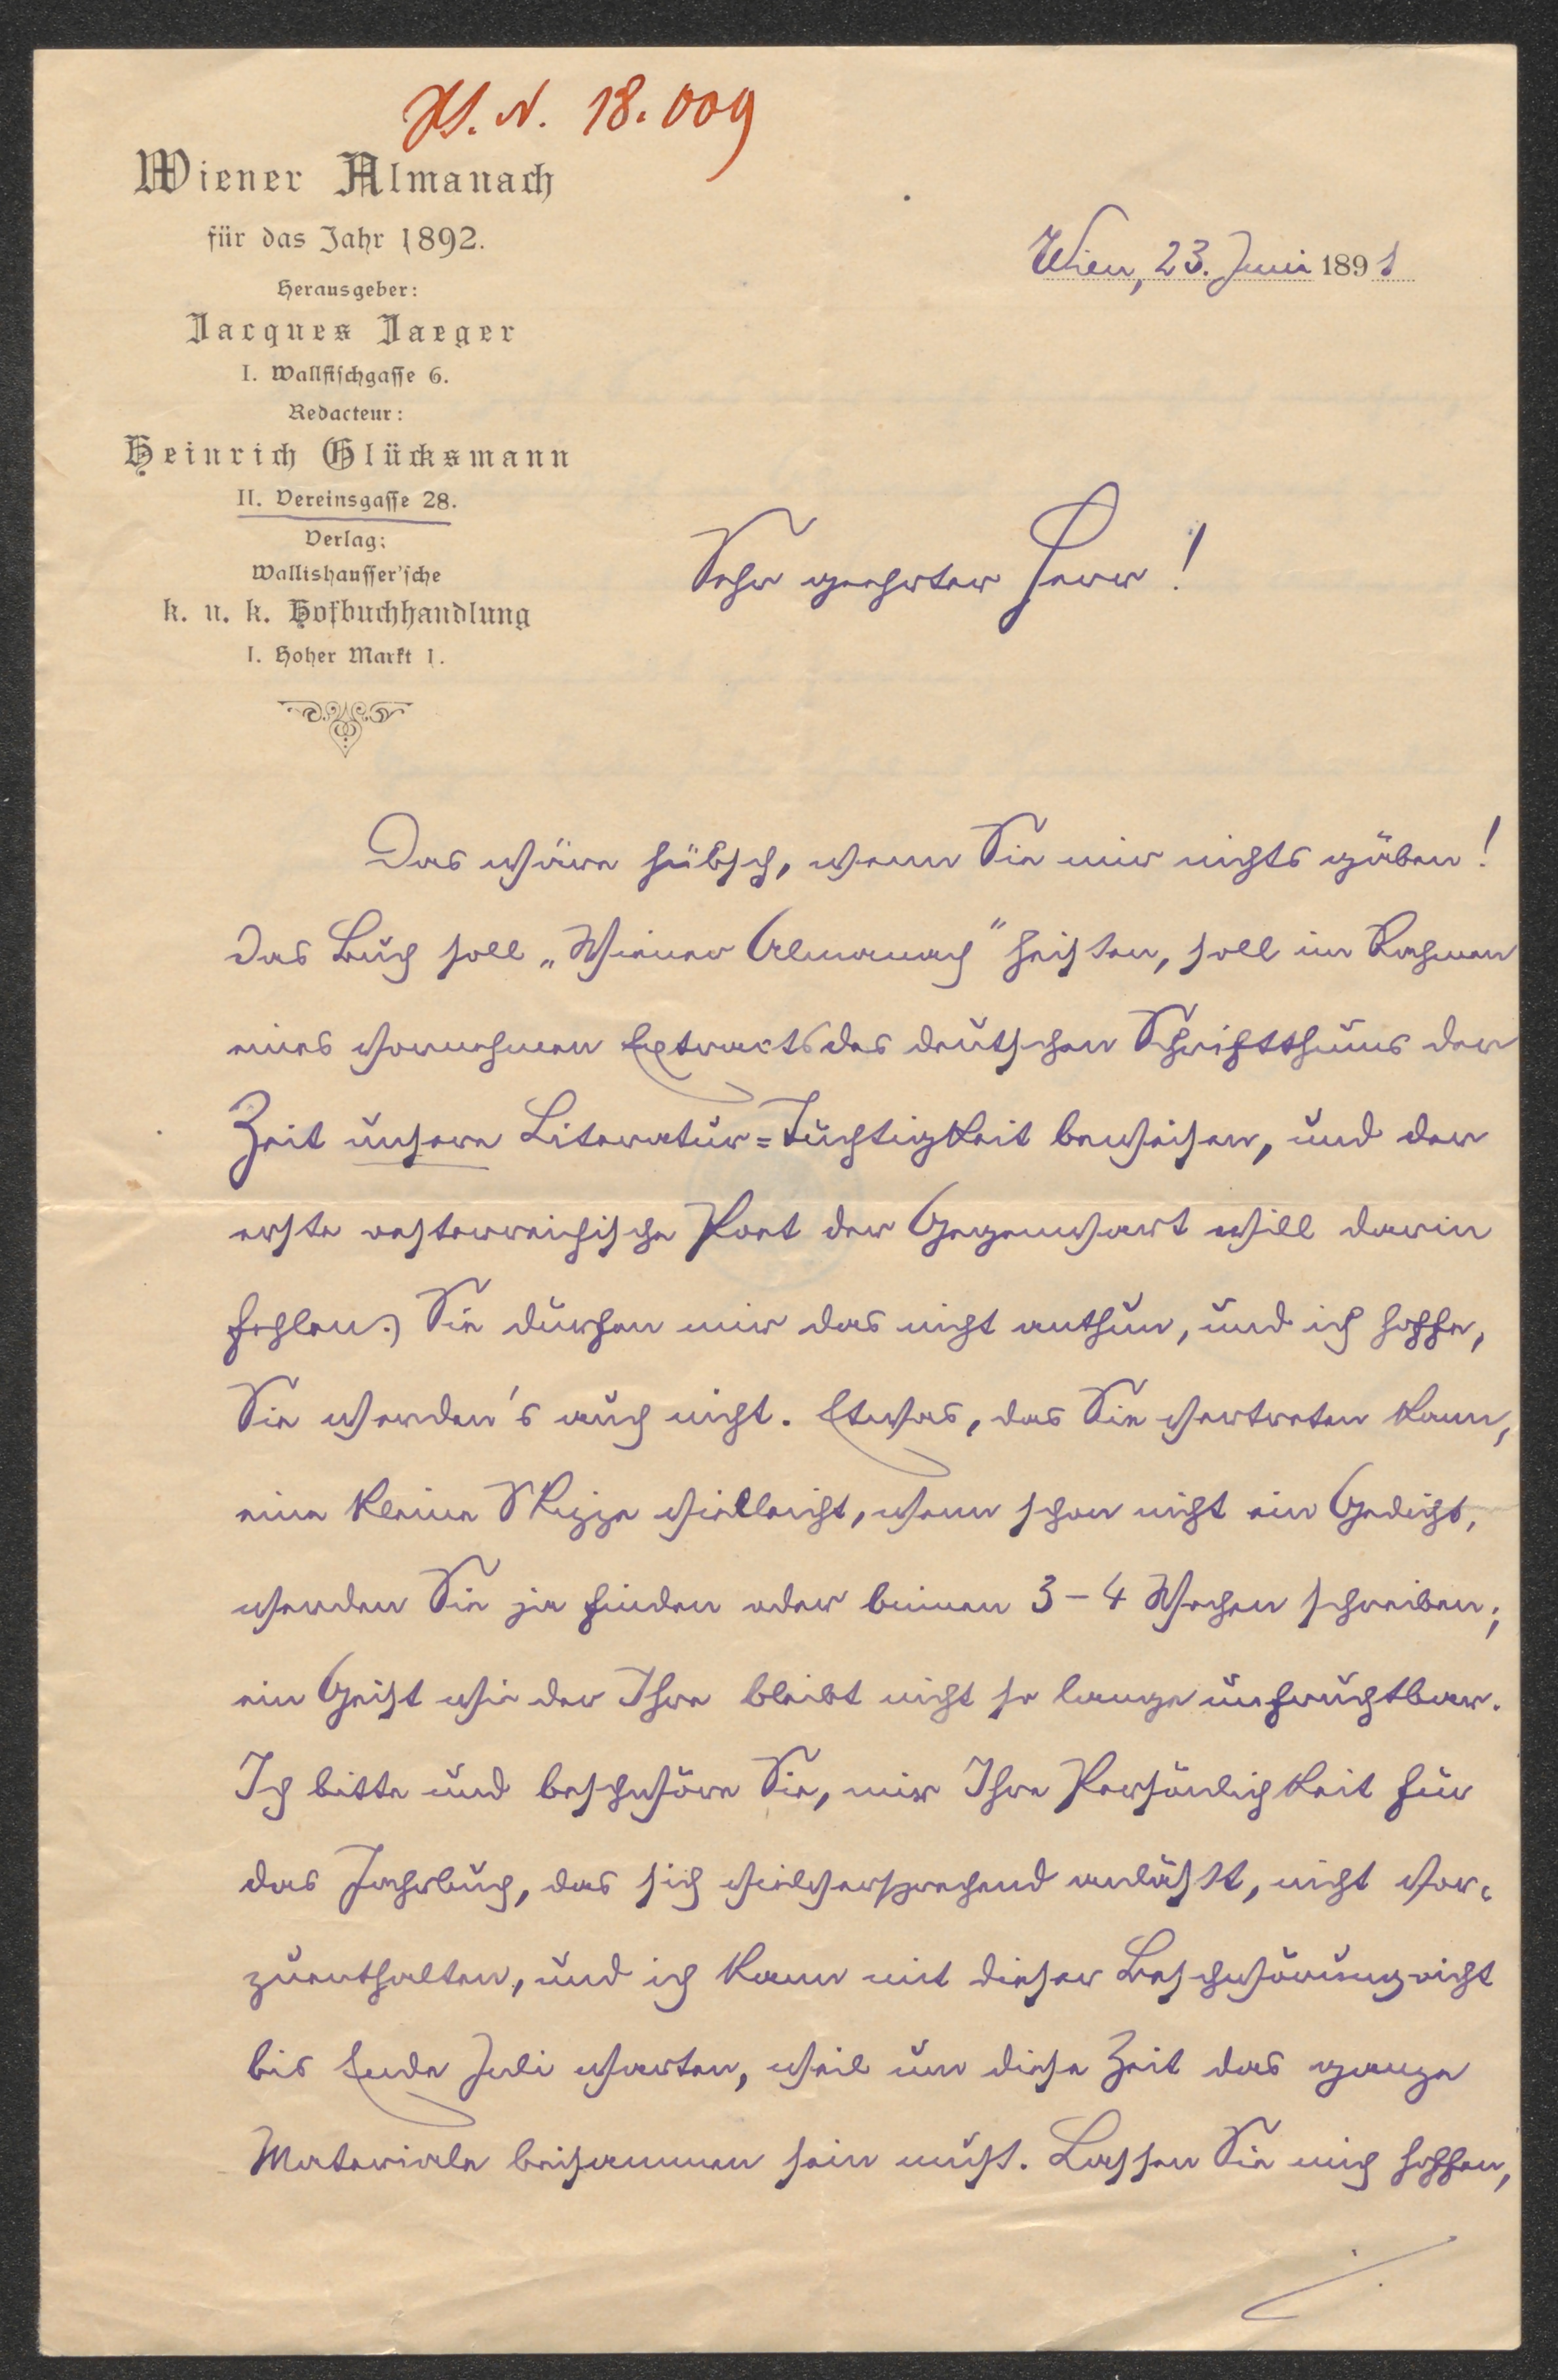 H.I.N. 18.009
Wiener Almanach
für das Jahr 1892.
Herausgeber:
Jacques Jaeger
I. Wallfischgasse 6.
Redacteur:
Heinrich Glücksmann
II. Vereinsgasse 28.
Verlag:
Wallishausser'sche
k. u. k. Hofbuchhandlung
I. Hoher Markt 1.
Wien, 23. Juni 1891
Sehr geehrter Herr!
Das wäre hübsch, wenn Sie mir nichts gäben!
Das Buch soll „Wiener Almanach" heißen, soll im Rahmen
eines vornehmen Extracts des deutschen Schriftthums der
Zeit unsere Literatur-Tüchtigkeit beweisen, und der
erste oesterreichische Poet der Gegenwart will darin
fehlen?) Sie dürfen mir das nicht anthun, und ich hoffe,
Sie werden's auch nicht. Etwas, das Sie vertreten kann,
eine kleine Skizze vielleicht, wenn schon nicht ein Gedicht,
werden Sie ja finden oder binnen 3-4 Wochen schreiben;
ein Geist wie der Ihre bleibt nicht so lange unfruchtbar.
Ich bitte und beschwöre Sie, mir Ihre Persönlichkeit für
das Jahrbuch, das sich vielversprechend anläßt, nicht vor-
zuenthalten, und ich kann mit dieser Beschwörung nicht
bis Ende Juli warten, weil um diese Zeit das ganze
Materiale beisammen sein muß. Lassen Sie mich hoffen,
./.